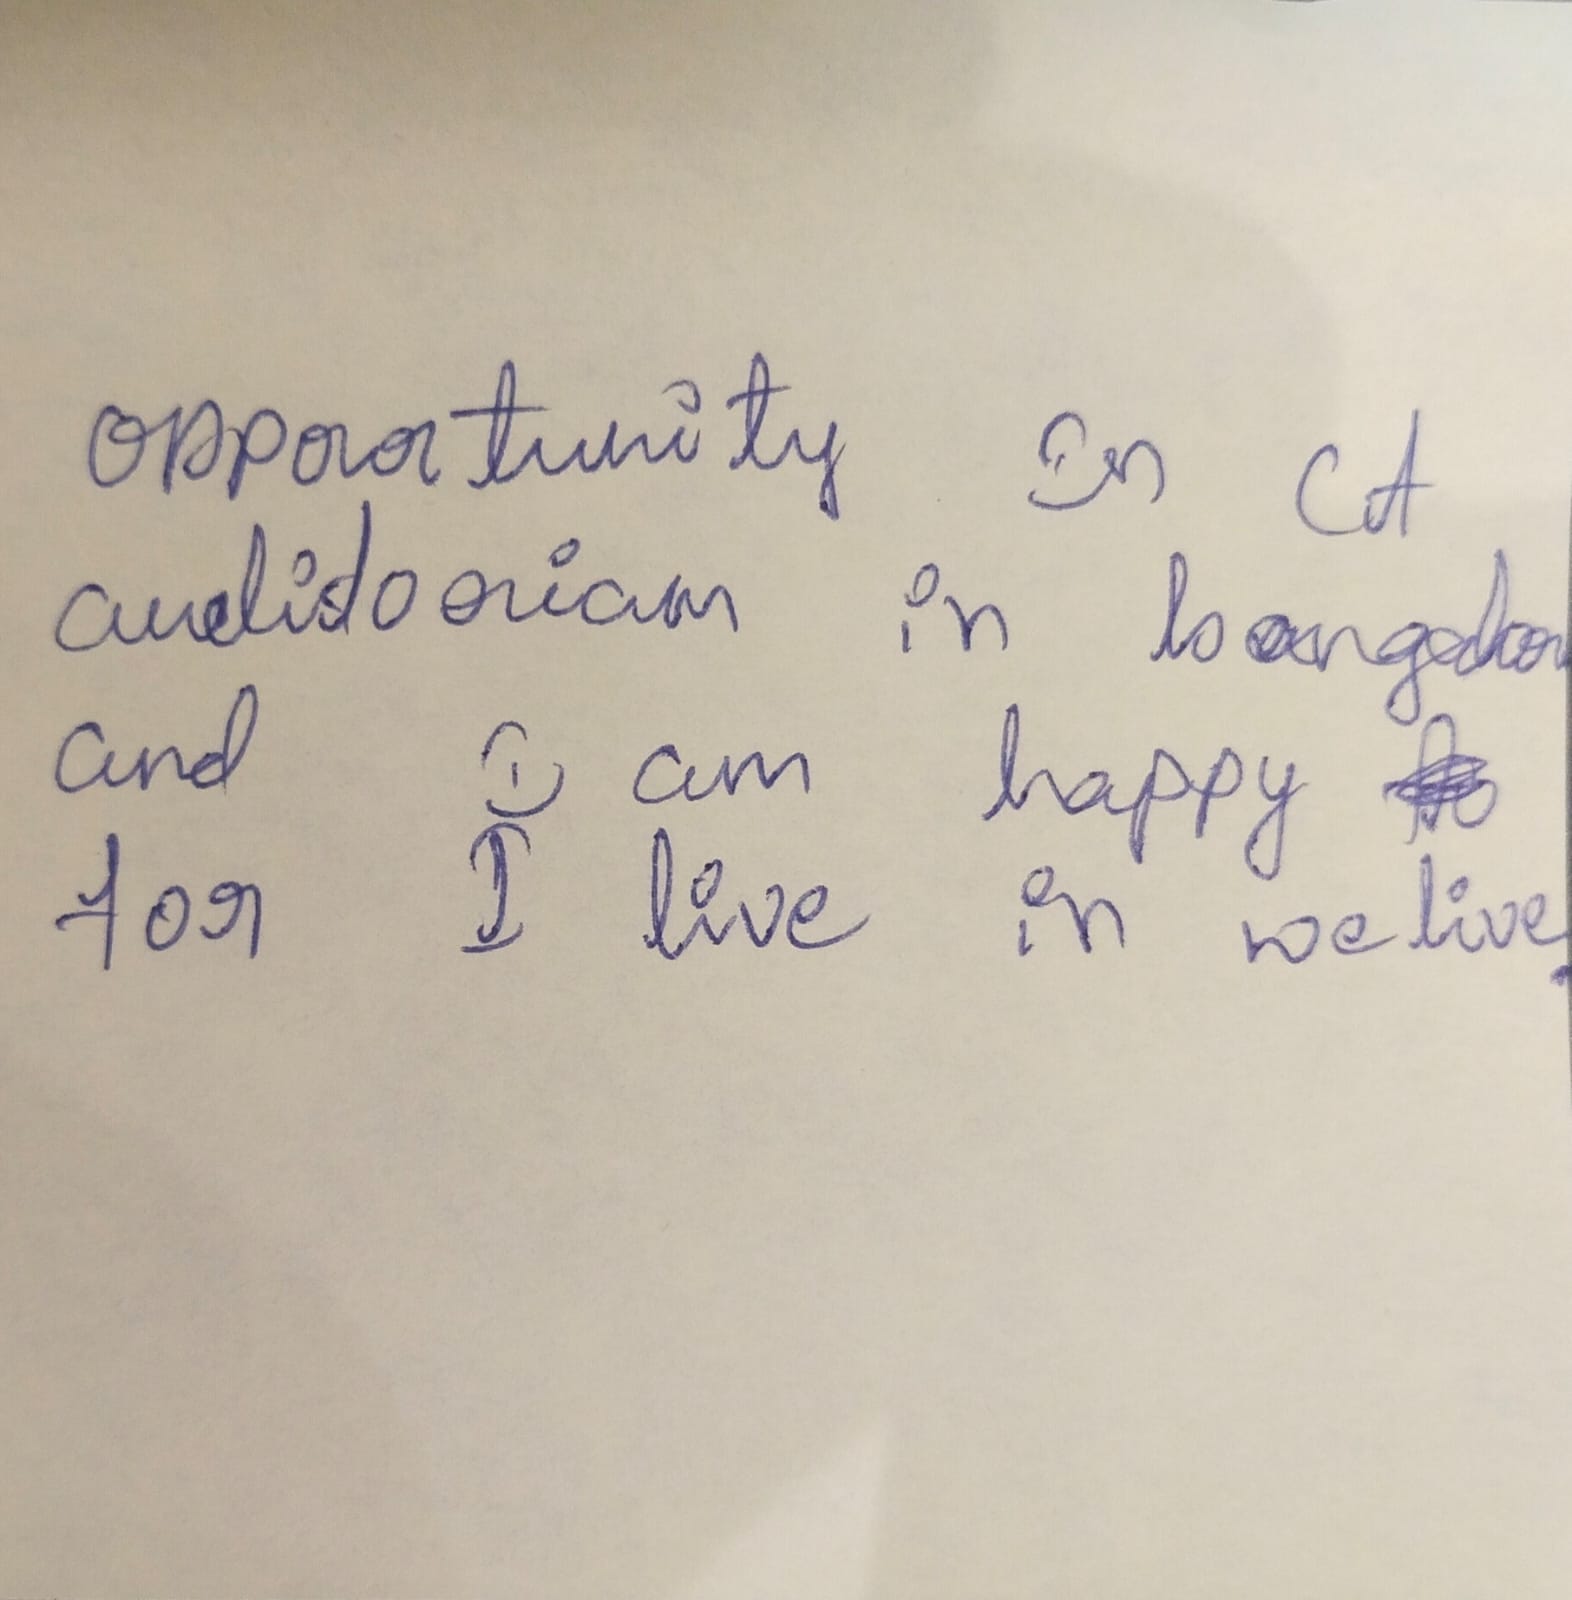 opportunity In CA
audidooriam in
and I am happy
for I live in we live